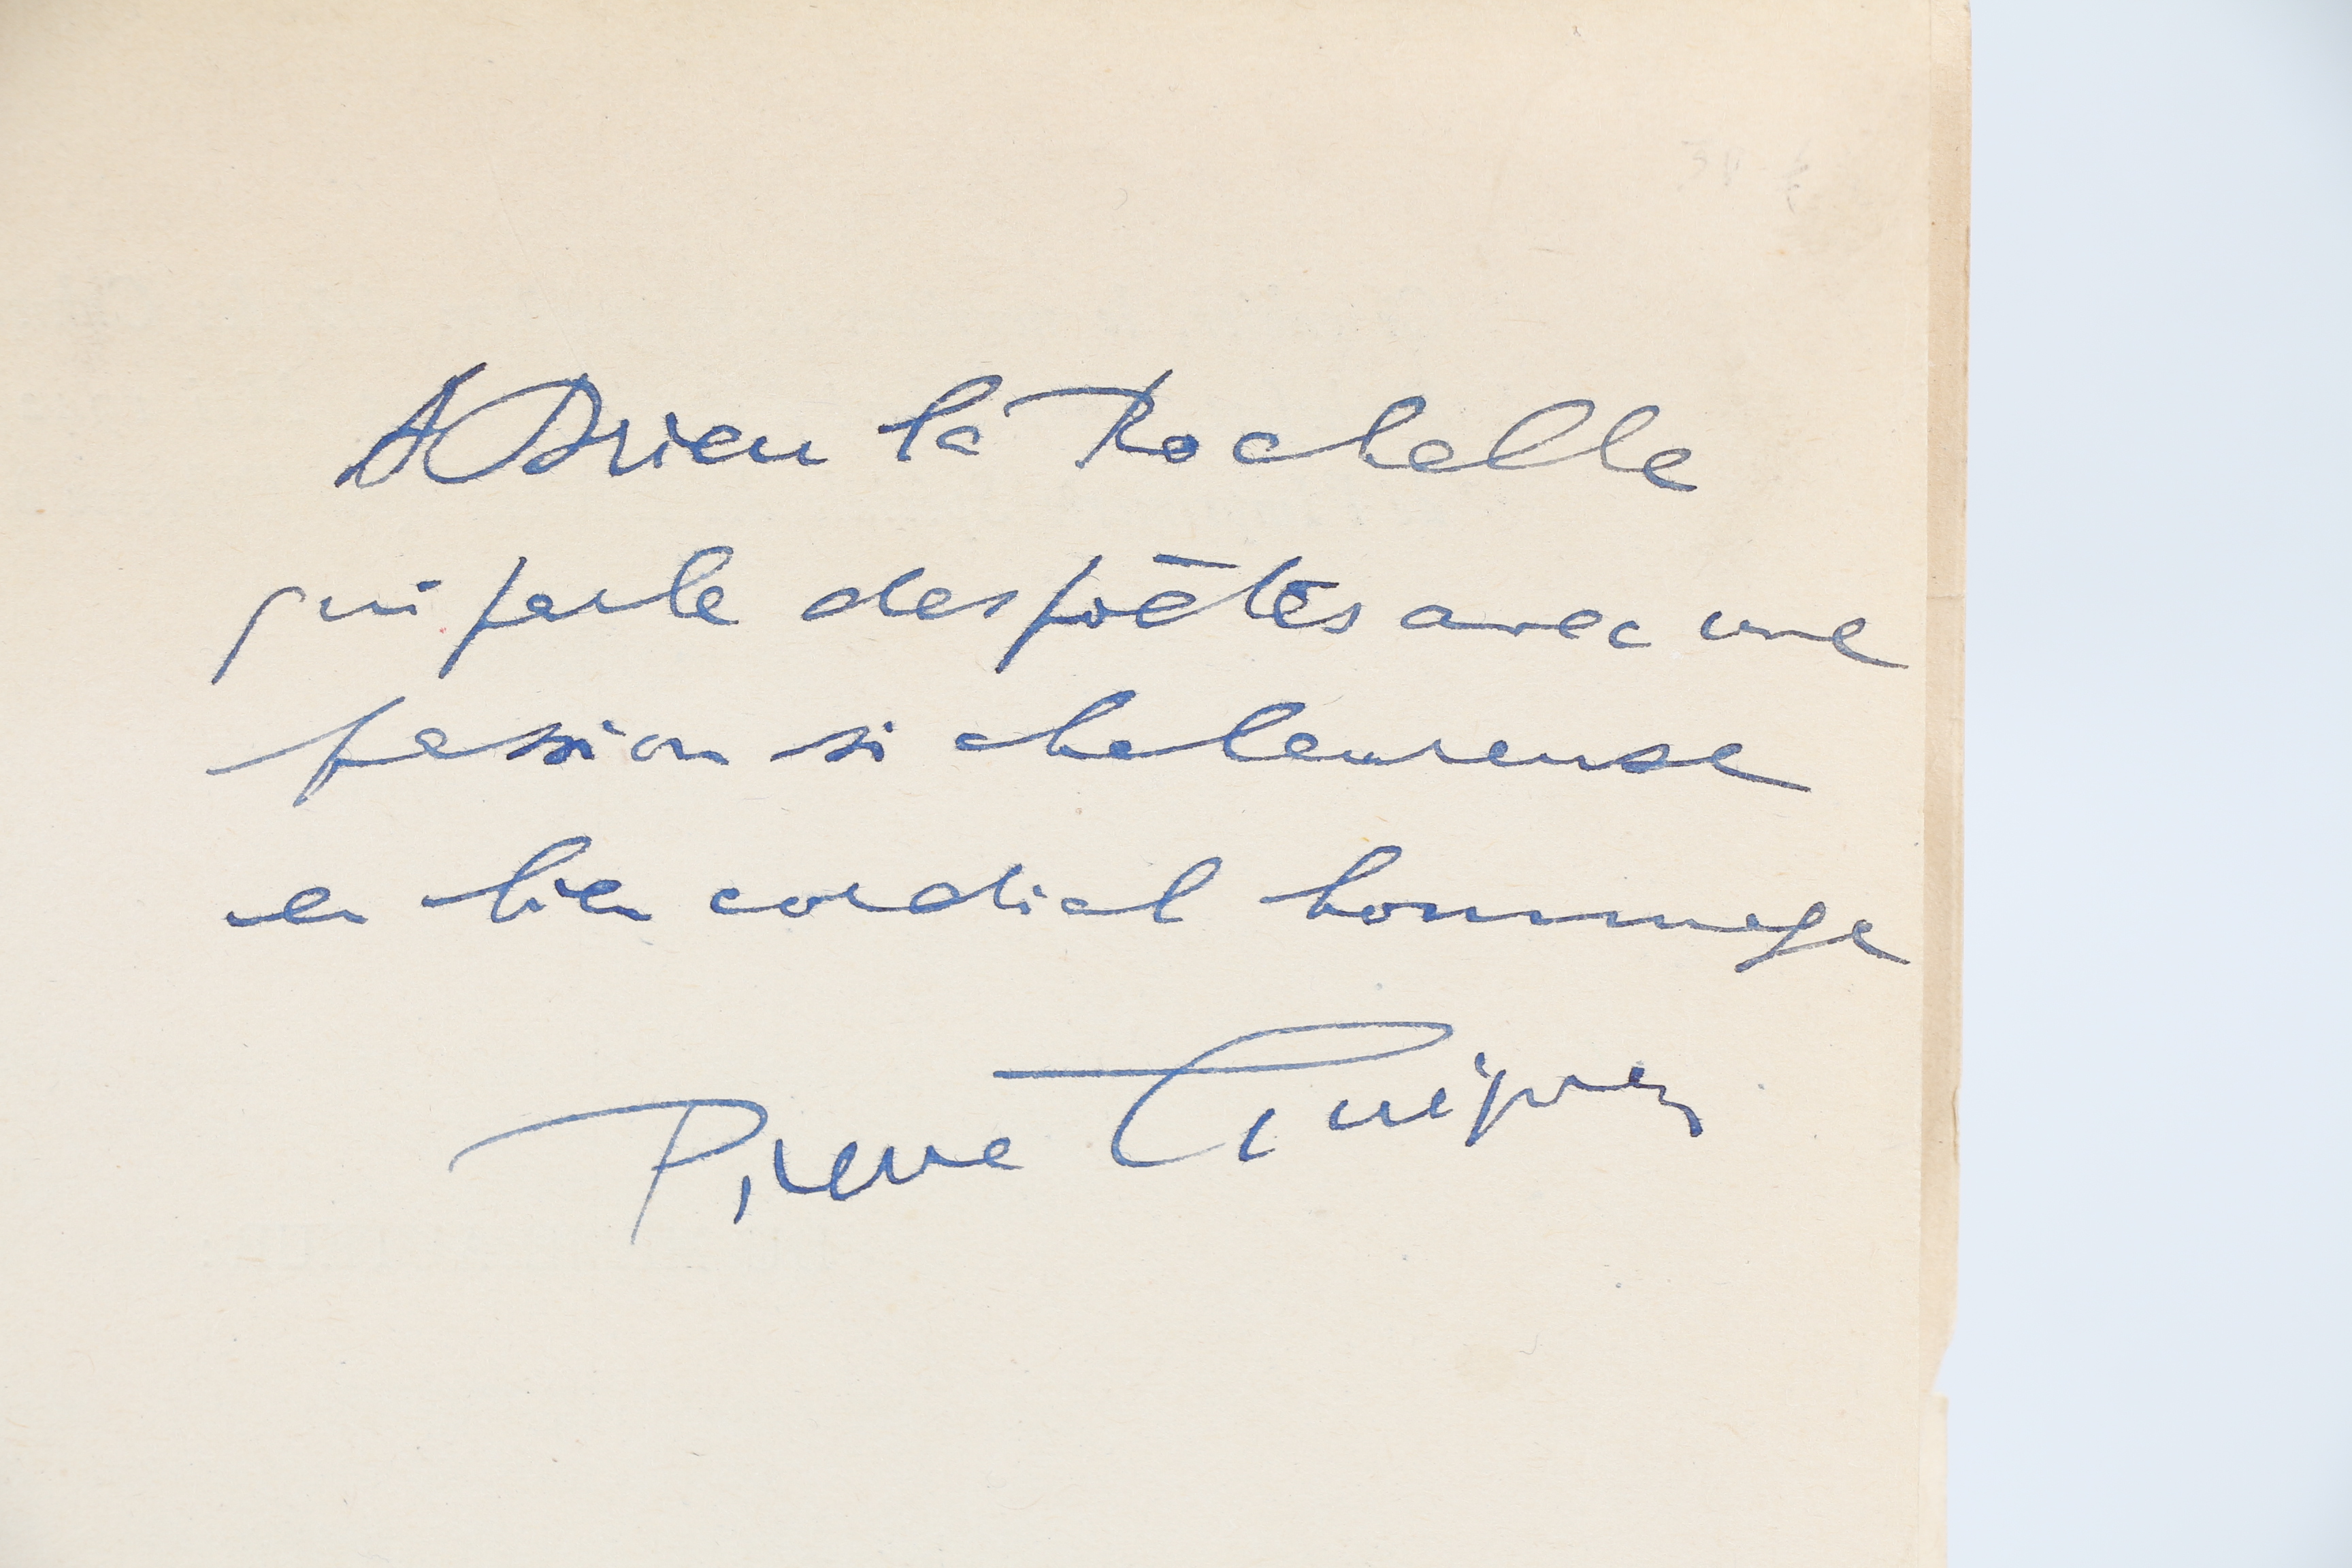 A Drieu la Rochelle
qui parle des poètes avec une
passion si chaleureuse
en bien cordial hommage
Pierre